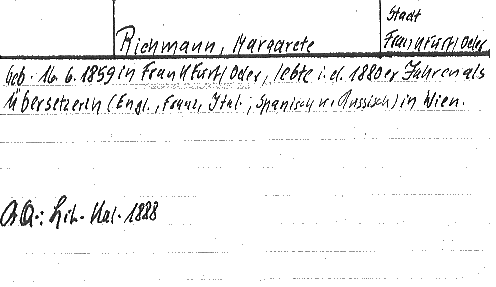 Stadt
Richmann, Margarete Frankfurt/Oder
geb. 16.6.1859 in Frankfurt/Oder, lebte i.d. 1880er Jahren als
Übersetzerin (Engl., Franz., Ital., Spanisch u. Russisch) in Wien.
BQ.: Lit. Kal. 1888